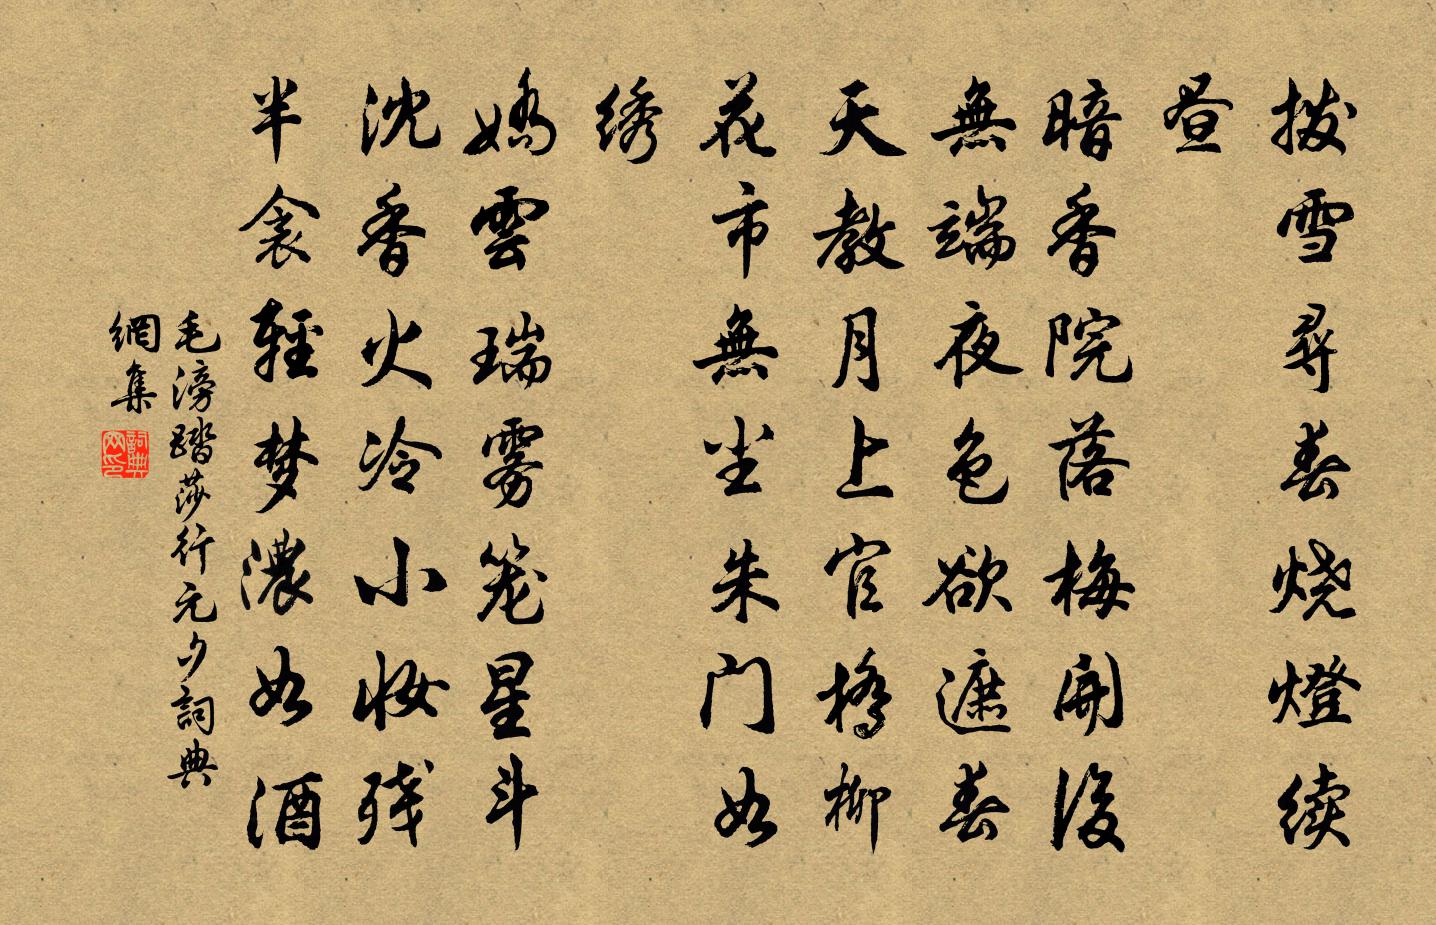 拨雪尋春烧燈续
昼
暗香院落梅開後
無端夜色欲遮春
天教月上官橋柳
花市無尘朱门如
绣
嬌雲瑞雾笼星斗
沈香火冷小妆残
半衾輕梦濃如酒
毛滂踏莎行元夕詞典
網集
詞典
网印